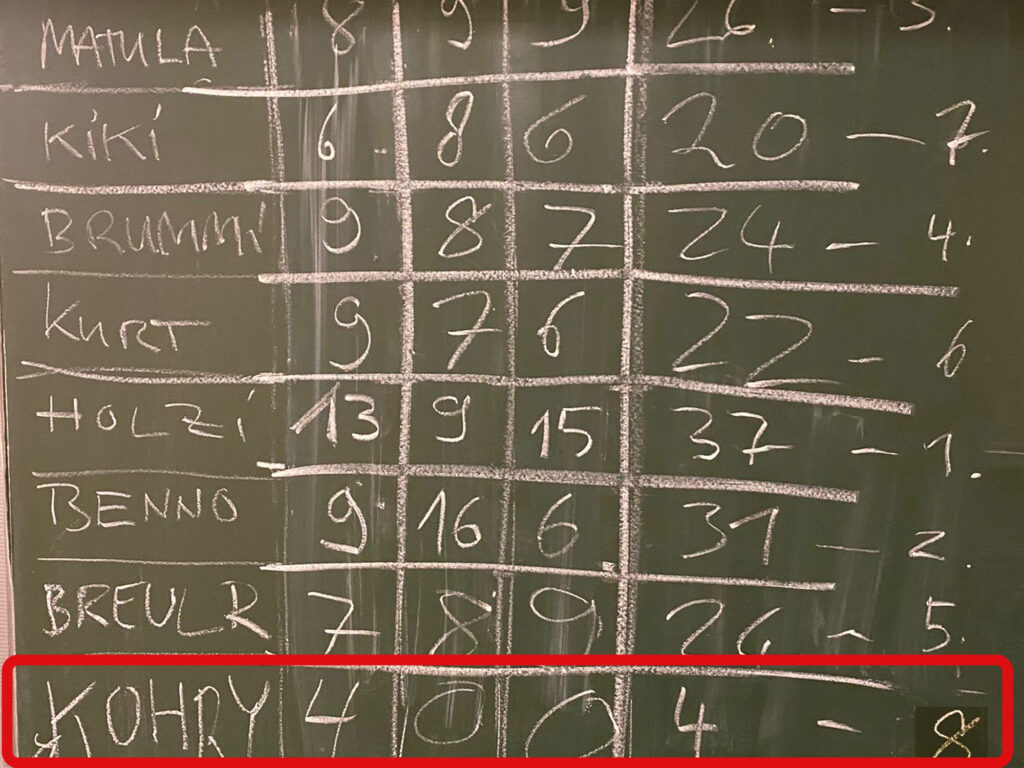 MATULA 8 9 9 26 - 3.
KiKi 6 8 6 20 - 7.
BRUMMi 9 8 7 24 - 4.
KURT 9 7 6 22 - 6
HOLZi 13 9 15 37 - 1.
BENNO 9 16 6 31 - 2.
BREULR 7 8 9 26 - 5.
KOHRY 4 0 0 4 - 8